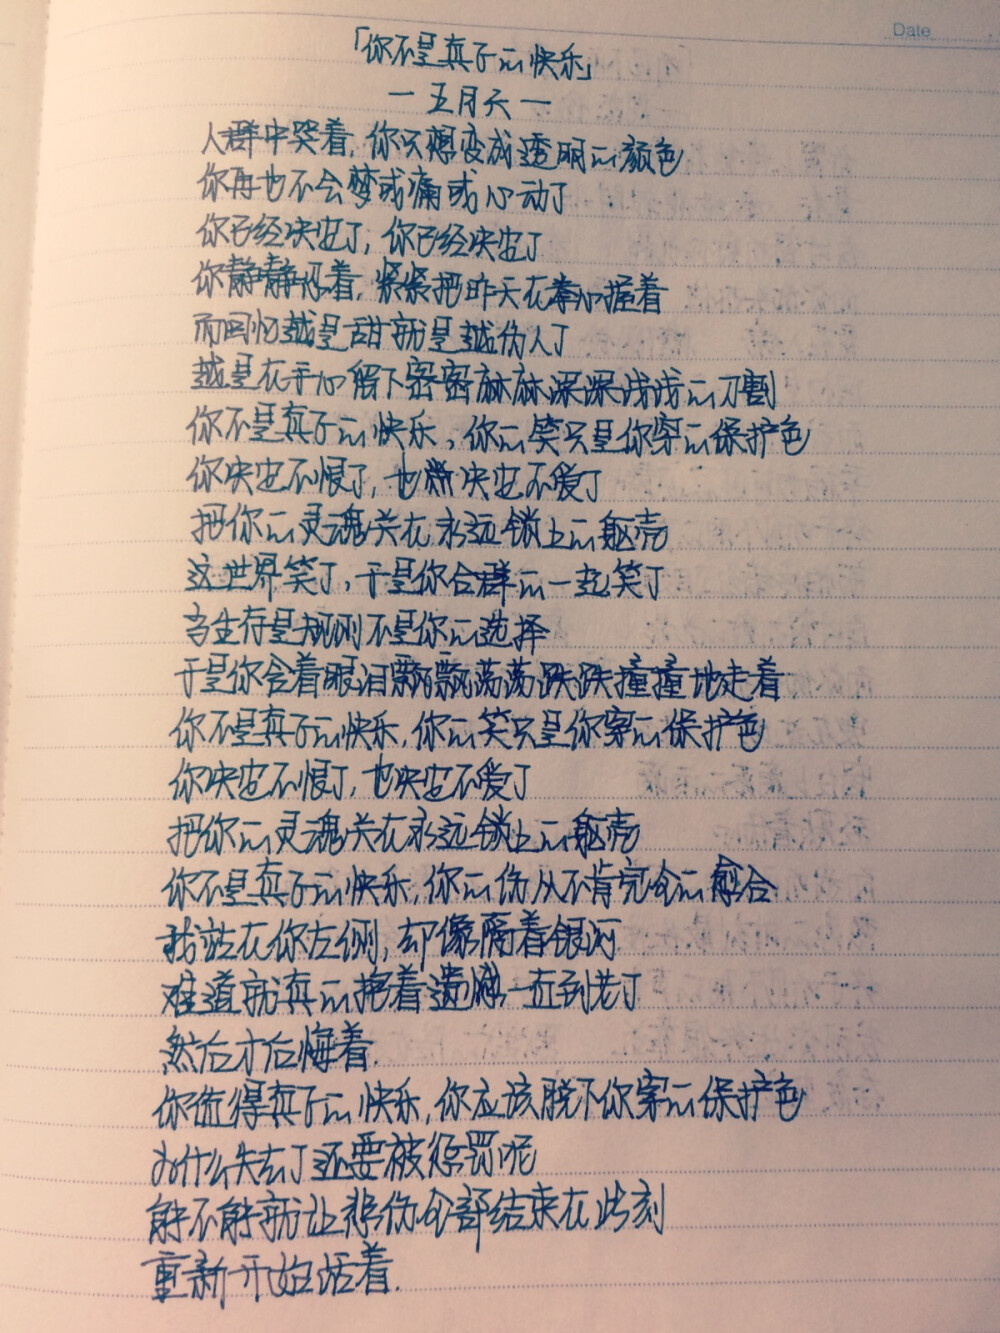 Date
「你不是真正的快乐」
— 五月天 —
人群中哭着,你只想变成透明的颜色
你再也不会梦或痛或心动了
你已经决定了,你已经决定了
你静静忍着,紧紧把昨天在拳心握着
而回忆越是甜就是越伤人了
越是在手心留下密密麻麻深深浅浅的刀割
你不是真正的快乐,你的笑只是你穿的保护色
你决定不恨了,也决定不爱了
把你的灵魂关在永远锁上的躯壳
这世界笑了,于是你合群的一起笑了
当生存是规则不是你的选择
于是你含着眼泪飘飘荡荡跌跌撞撞地走着
你不是真正的快乐,你的笑只是你穿的保护色
你决定不恨了,也决定不爱了
把你的灵魂关在永远锁上的躯壳
你不是真正的快乐,你的伤从不肯完全的愈合
我站在你左侧,却像隔着银河
难道就真的抱着遗憾一直到老了
然后才后悔着
你值得真正的快乐,你应该脱下你穿的保护色
为什么失去了还要被惩罚呢
能不能就让悲伤全部结束在此刻
重新开始活着.